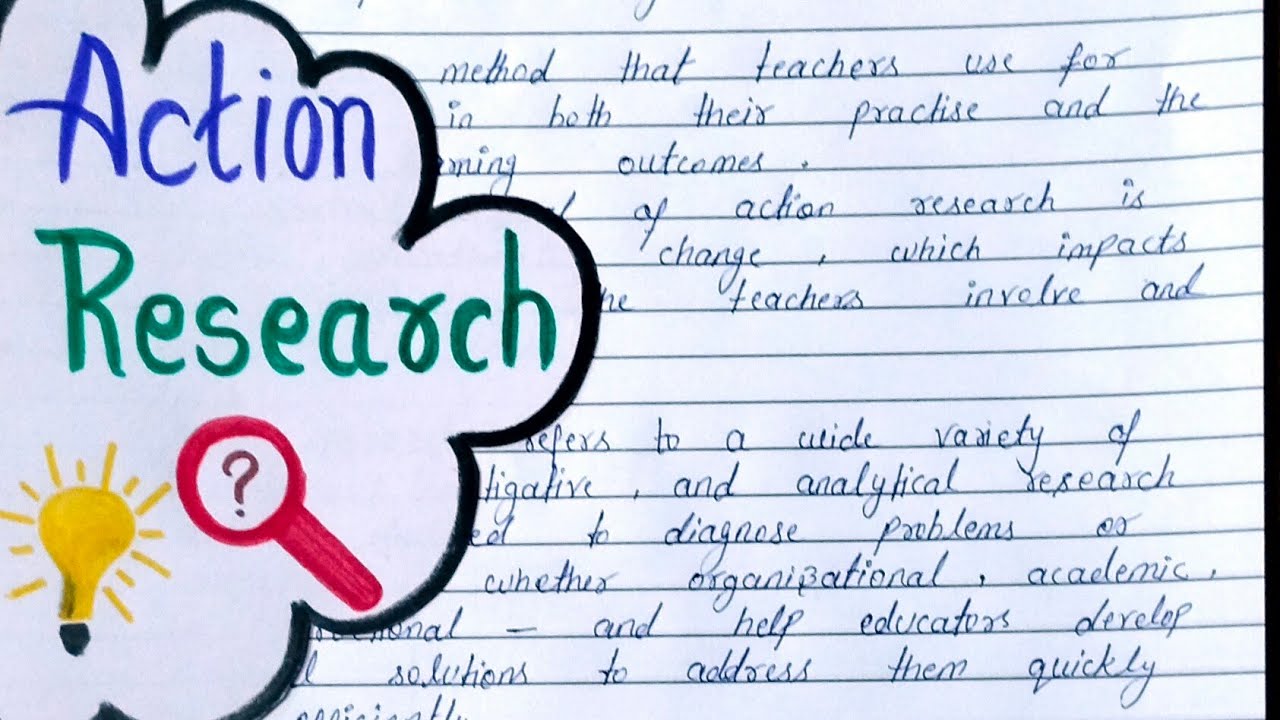 Action
Research
?
method that teachers use for
in both their practise and the
outcomes.
of action research is
change, which impacts
teachers involve and
refers to a wide variety of
and analytical research
to diagnose problems or
whether organizational, academic,
— and help educators develop
solutions to address them quickly